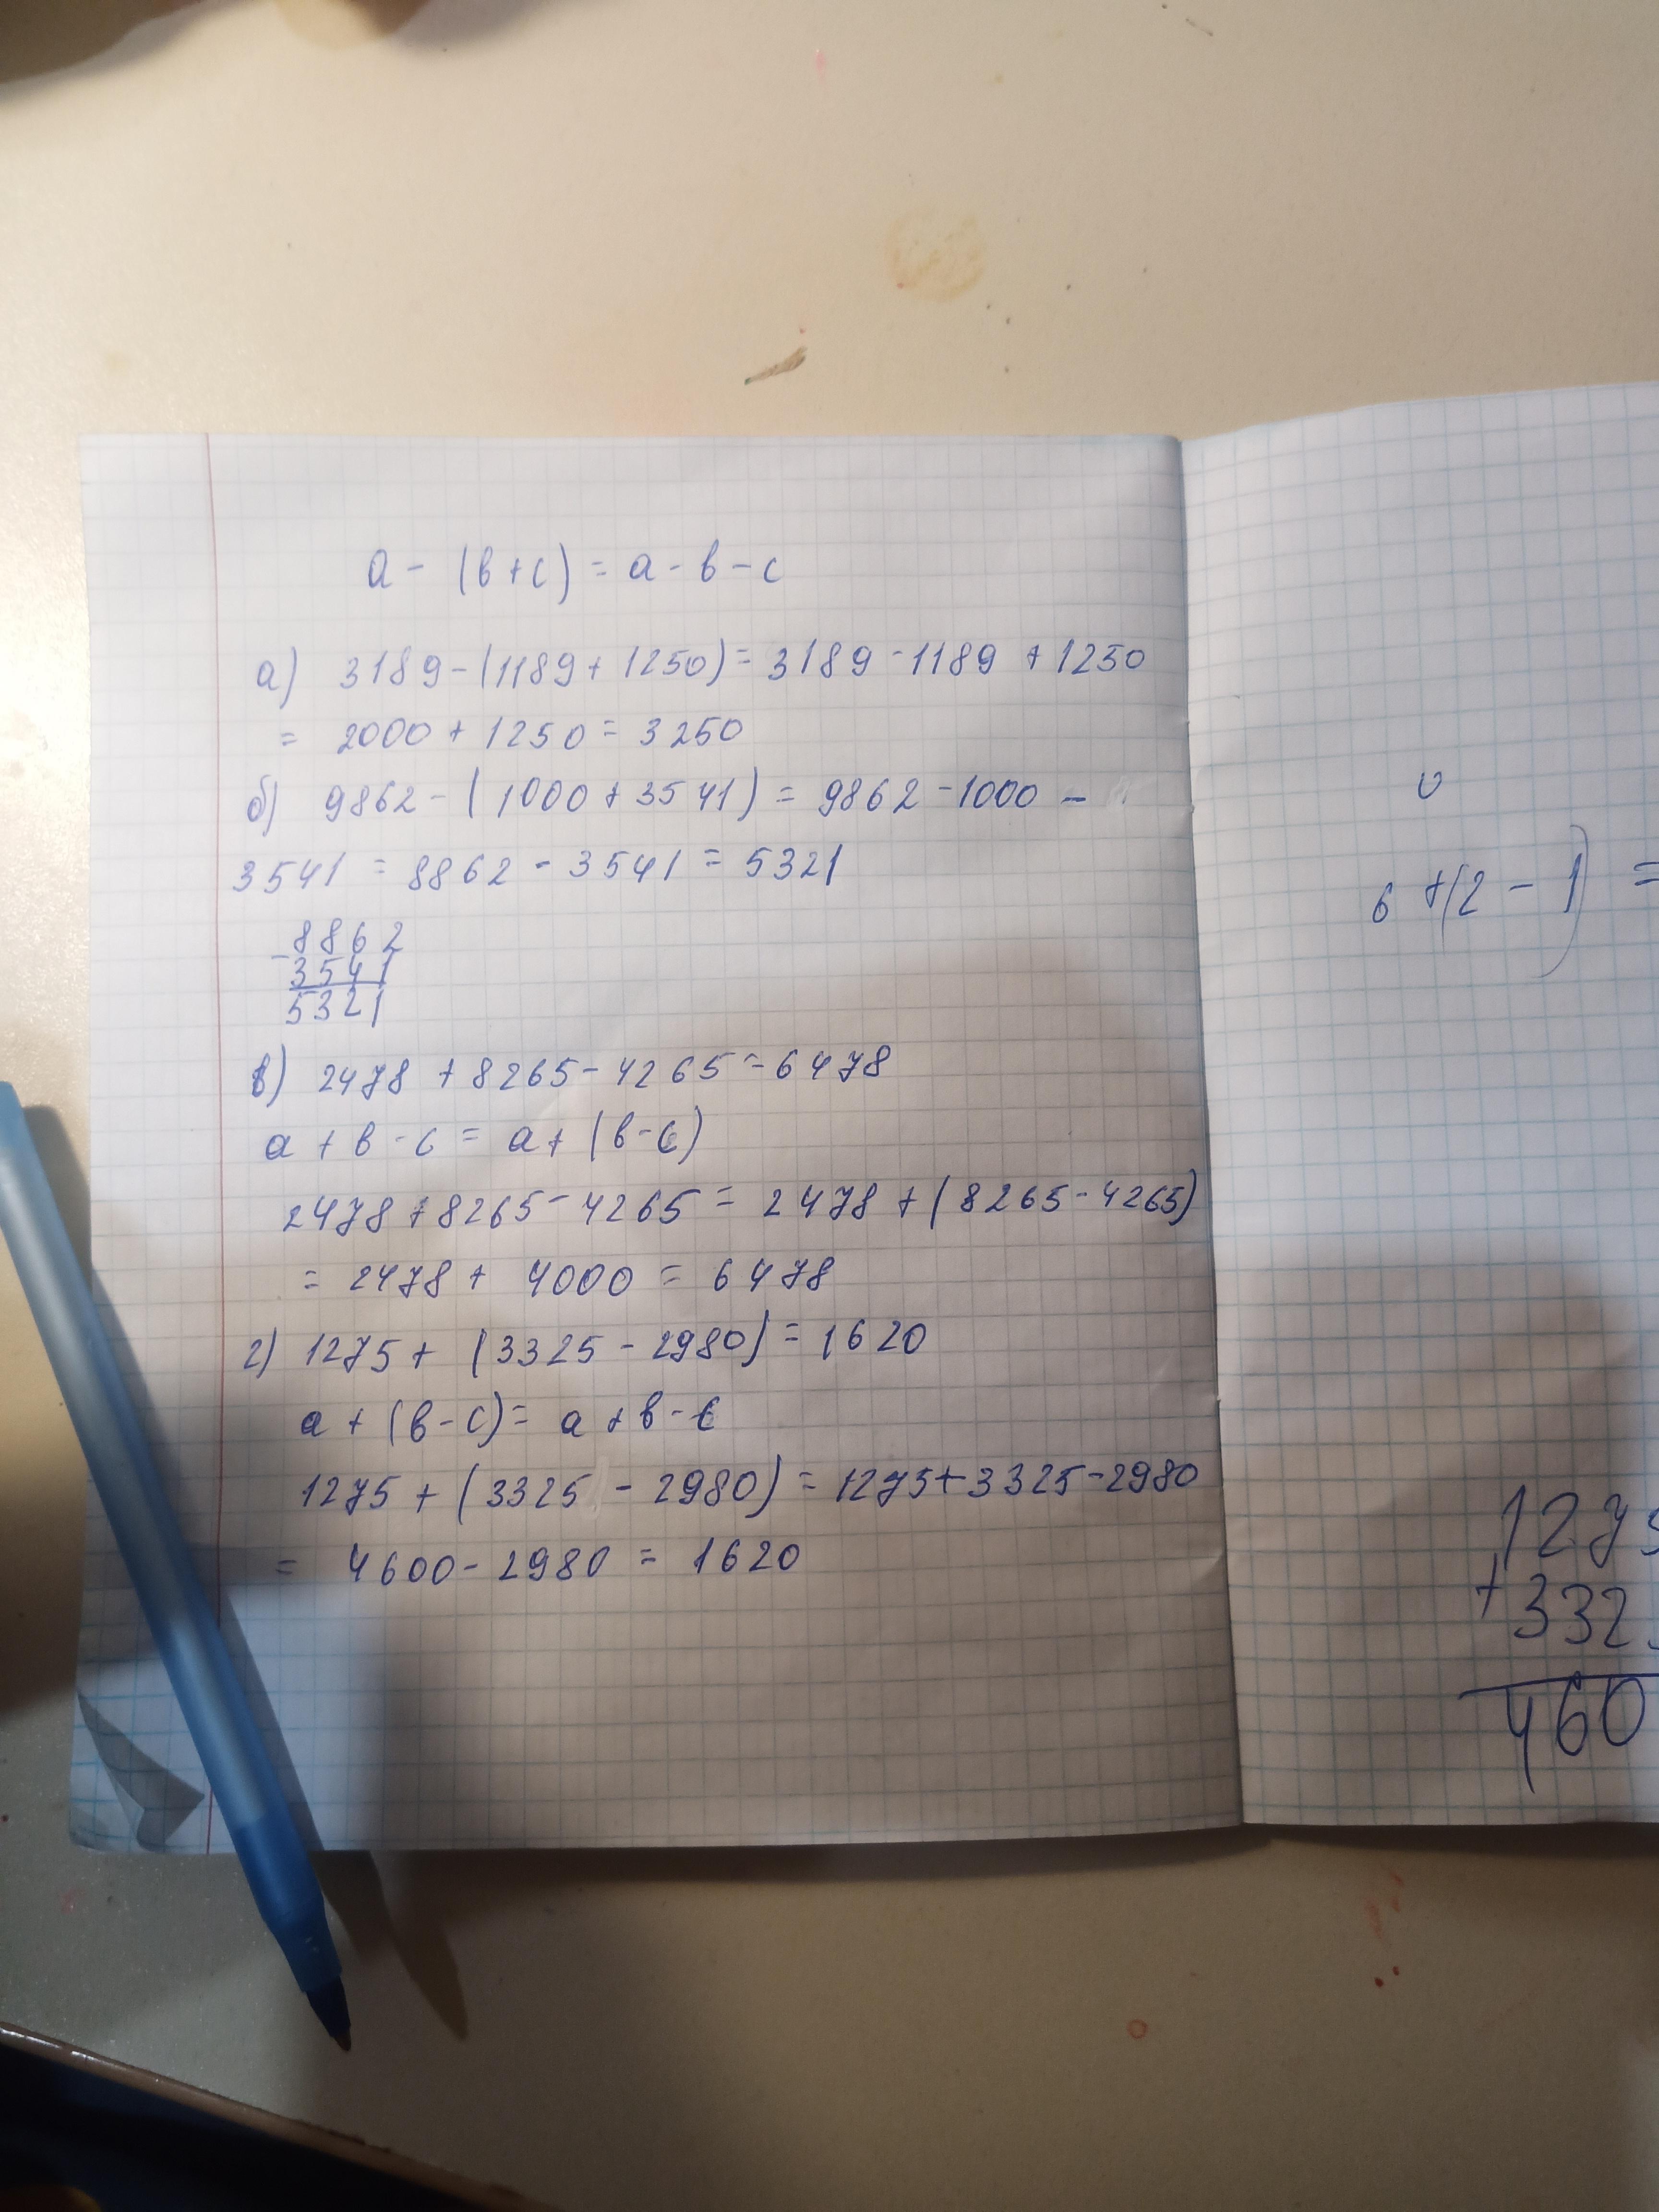 а - (в + с) = а - в - с
а) 3189 - (1189 + 1250) = 3189 - 1189 + 1250
= 2000 + 1250 = 3250
б) 9862 - (1000 + 3541) = 9862 - 1000 -
3541 = 8862 - 3541 = 5321
- 8862
3541
5321
в) 2478 + 8265 - 4265 = 6478
а + в - с = а + (в - с)
2478 + 8265 - 4265 = 2478 + (8265 - 4265)
= 2478 + 4000 = 6478
г) 1275 + (3325 - 2980) = 1620
а + (в - с) = а + в - с
1275 + (3325 - 2980) = 1275 + 3325 - 2980
= 4600 - 2980 = 1620
6 + (2 - 1) =
1275
+ 332
460